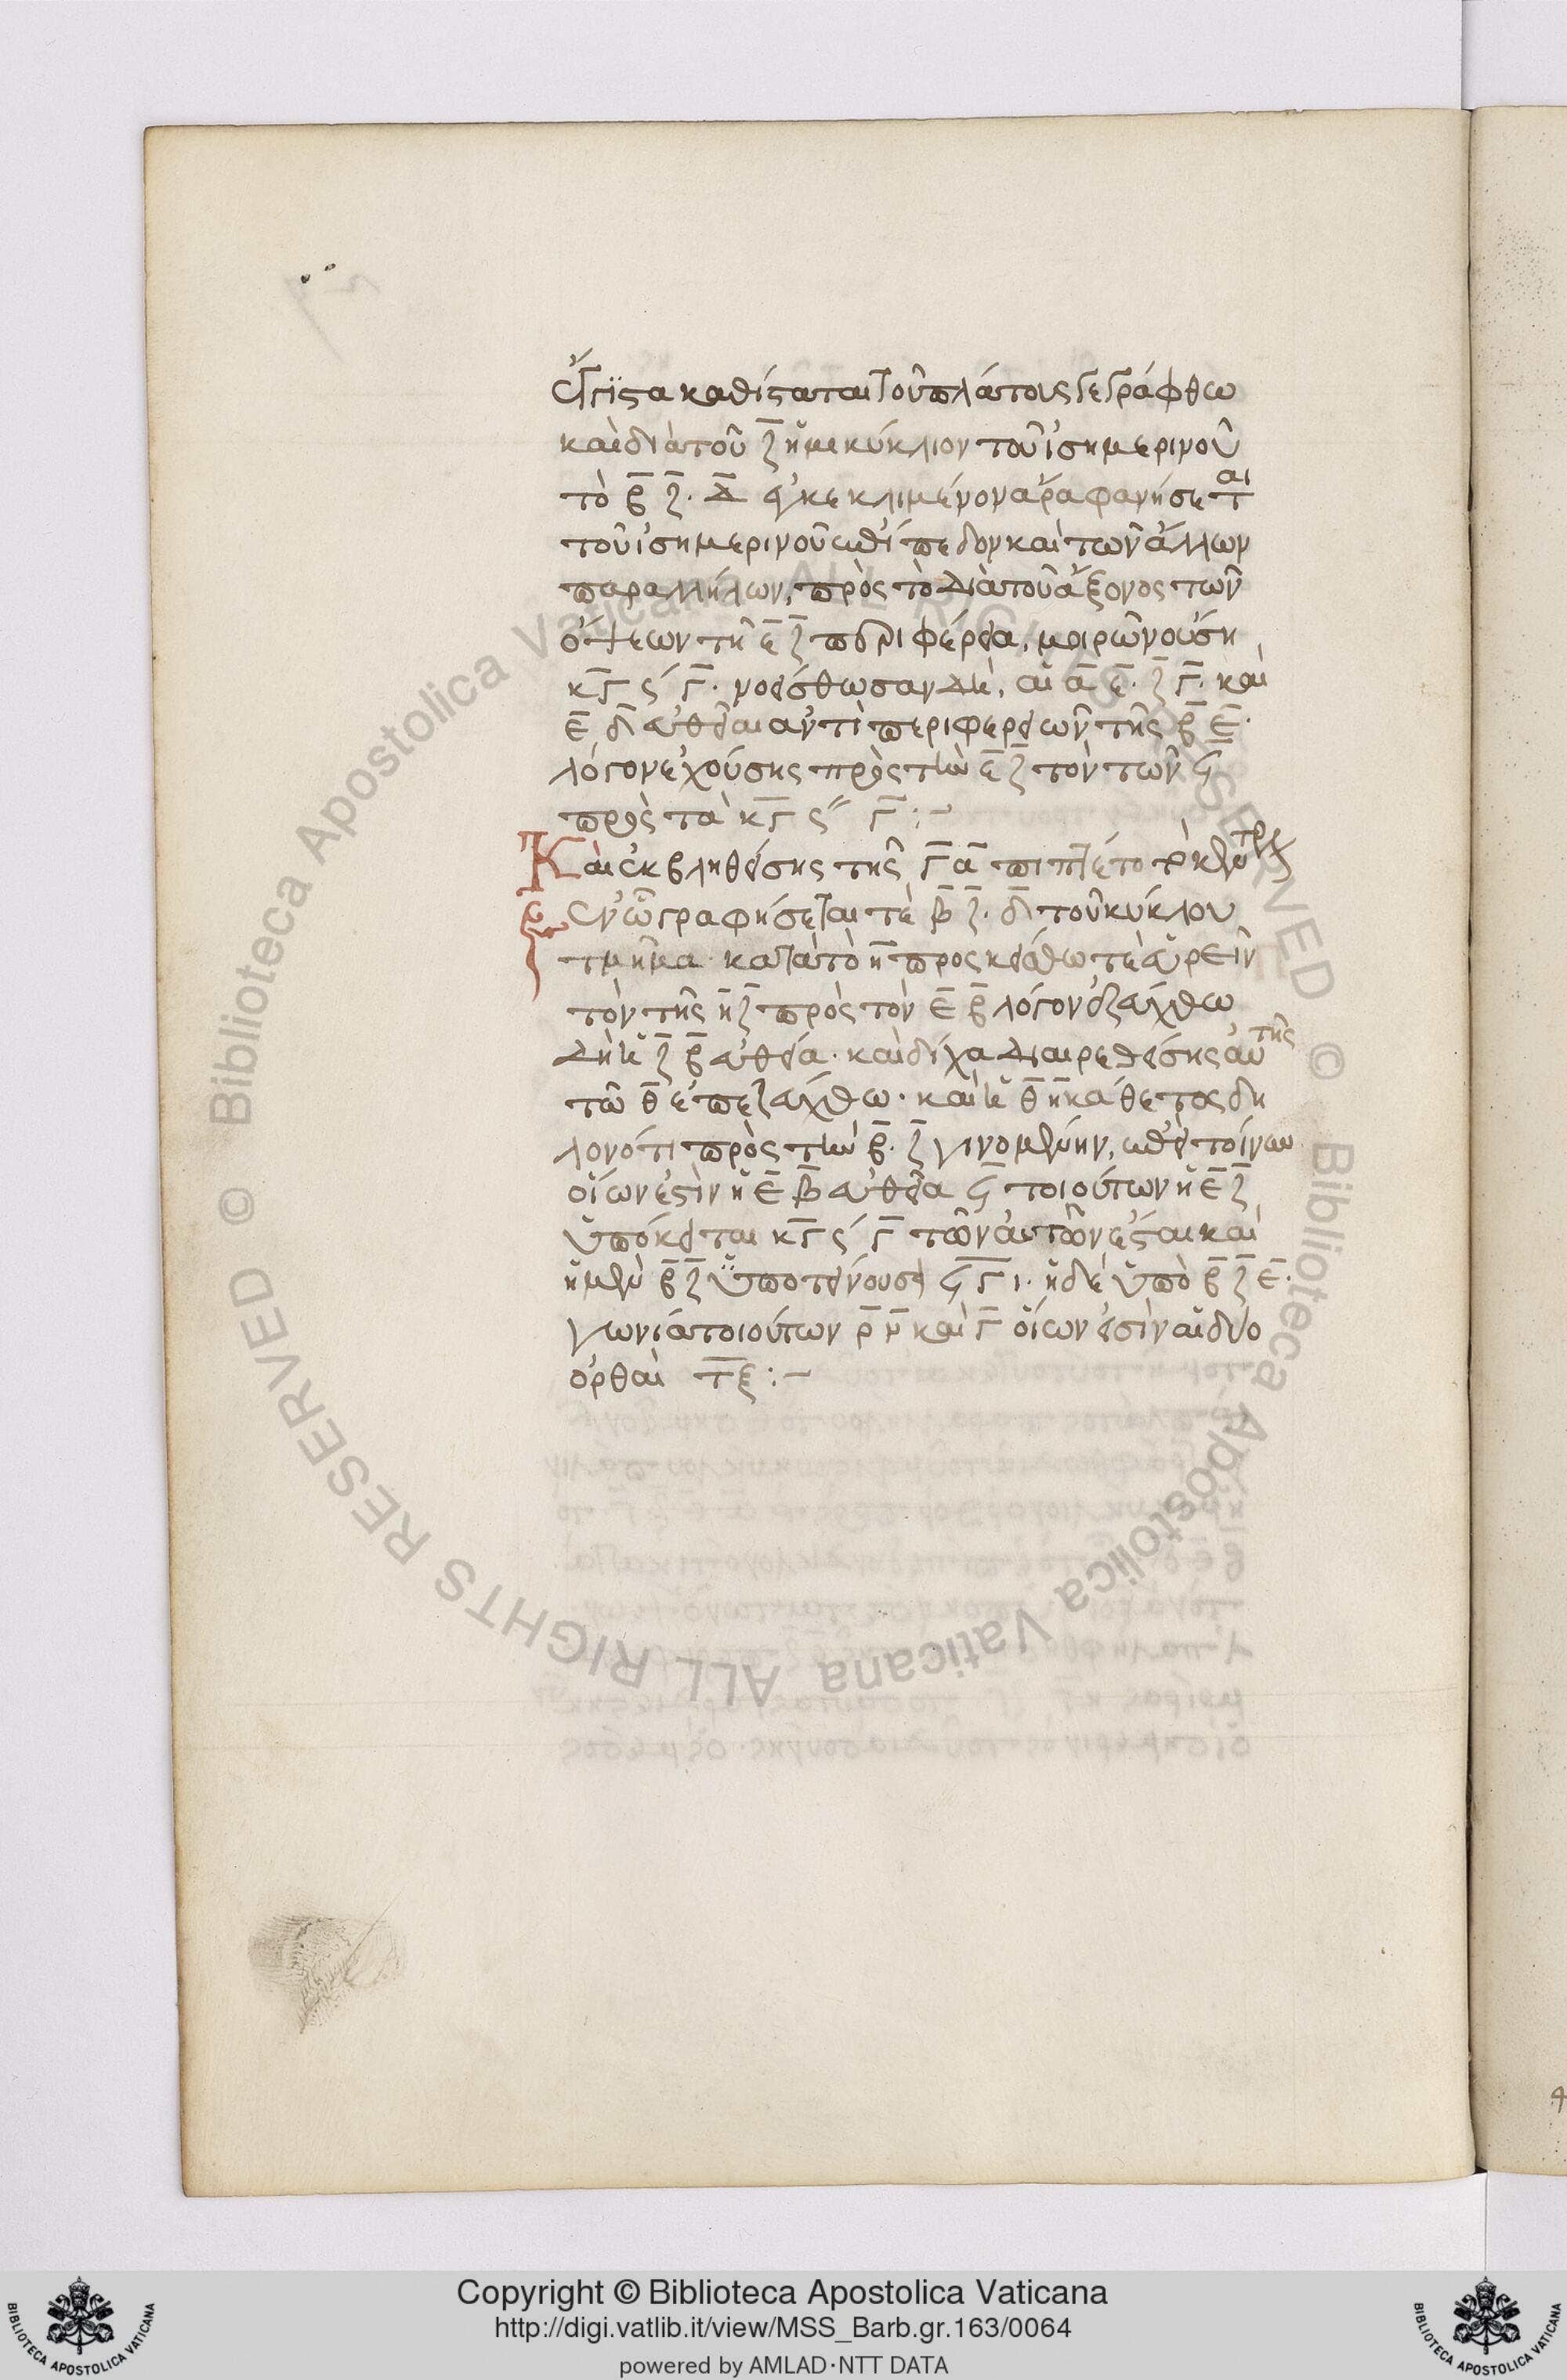 ἔγγιστα καθίσταται τοῦ πλάτους γεγράφθω
καὶ διὰ τοῦ ζ̅ ἡμικύκλιον τοῦ ἰσημερινοῦ
τὸ β̅ ζ̅· δ̅ ἐγκεκλιμένον ἄρα φανήσεται
τοῦ ἰσημερινοῦ ἐπίπεδον καὶ τῶν ἄλλων
παραλλήλων, πρὸς τὸ διὰ τοῦ ἄξονος τῶν
ὄψεων τῇ ε̅ ζ̅ περιφέρεια, μοιρῶν οὔση
κ̅γ̅ ς´ γ̅· νοείσθωσαν δὴ, αἱ α̅ ε̅· ζ̅ γ̅· καὶ
ε̅ δ̅ εὐθεῖαι ἀντὶ περιφερειῶν τῆς β̅ ε̅·
λόγον ἐχούσης πρὸς τὴν ε̅ ζ̅ τὸν τῶν ϟ̅
πρὸς τὰ κ̅γ̅ ς´´ γ̅ :~
Καὶ ἐκβληθείσης τῆς γ̅α̅ πιπτέτο τὸ κέντρον
ἐν ᾧ γραφήσεται τὲ β̅ ζ̅· δ̅ τοῦ κύκλου
τμῆμα· κατὰ τὸ η̅ προσκείσθω τὲ εὑρεῖν
τὸν τῆς η̅ζ̅ πρὸς τὸν ε̅ β̅ λόγον ἐζεύχθω
δὴ ἡ ζ̅ β̅ εὐθεία· καὶ δίχα διαιρεθείσης αὐτῆς
τῶ θ̅ ἐπεζεύχθω· καὶ ἡ θ̅ η̅ κάθετος δη
λονότι πρὸς τὴν β̅· ζ̅ γινομένην, ἐπεὶ τοίνυν
οἵων ἐστὶν ἡ ε̅ β̅ εὐθεῖα ϟ̅ τοιούτων ἡ ε̅ ζ̅
ὑπόκειται κ̅γ̅ ς´ γ̅ τῶν αὐτῶν ἔσται καὶ
ἡ μὲν β̅ ζ̅ ὑποτείνουσα ϟ̅γ̅ ι· ἡ δὲ ὑπὸ β̅ ζ̅ ε̅·
γωνία τοιούτων ρ̅ ν̅ καὶ γ̅ οἵων εἰσὶν αἱ δύο
ὀρθαὶ τ̅ξ̅ :~
Copyright © Biblioteca Apostolica Vaticana
http://digi.vatlib.it/view/MSS_Barb.gr.163/0064
powered by AMLAD·NTT DATA